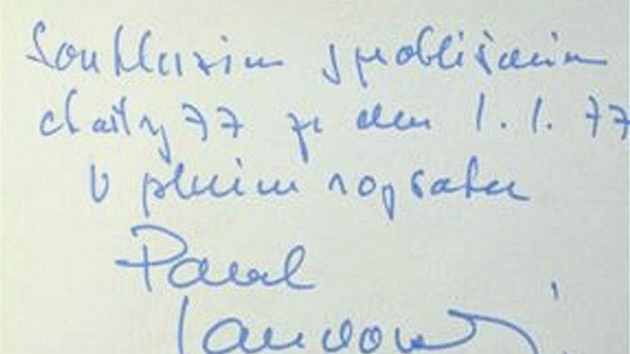 Souhlasím s prohlášením
charty 77 ze dne 1.1.77
v plném rozsahu
Pavel
Landovský